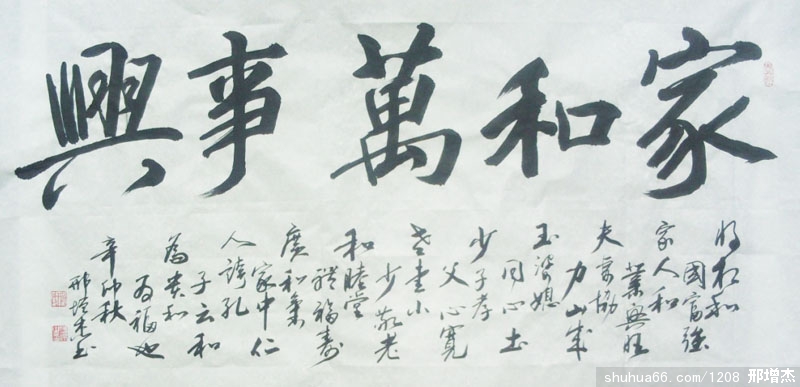 家和萬事興
將相和
國富強
家人和
業興旺
夫妻協
力山成
玉婆媳
同心土
少子孝
父心寬
老愛小
少敬老
和睦堂
福壽
廣和氣
家中仁
人誇孔
子云和
為貴和
為福也
辛卯秋
邢增杰書
shuhua66.com/1208 邢增杰